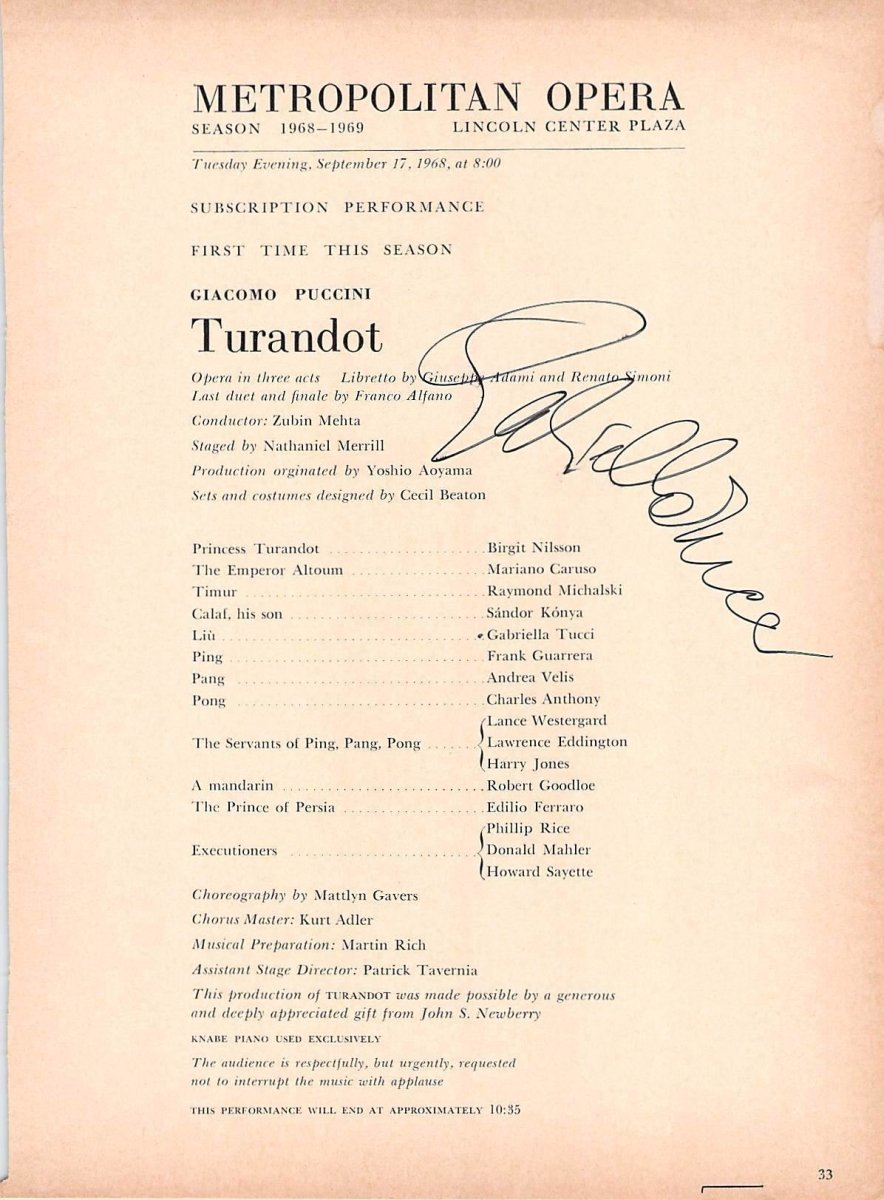 METROPOLITAN OPERA
SEASON 1968–1969 LINCOLN CENTER PLAZA
Tuesday Evening, September 17, 1968, at 8:00
SUBSCRIPTION PERFORMANCE
FIRST TIME THIS SEASON
GIACOMO PUCCINI
Turandot
Opera in three acts Libretto by Giuseppe Adami and Renato Simoni
Last duet and finale by Franco Alfano
Conductor: Zubin Mehta
Staged by Nathaniel Merrill
Production orginated by Yoshio Aoyama
Sets and costumes designed by Cecil Beaton
Gabriella Tucci
Princess Turandot Birgit Nilsson
The Emperor Altoum Mariano Caruso
Timur Raymond Michalski
Calaf, his son Sándor Kónya
Liù Gabriella Tucci
Ping Frank Guarrera
Pang Andrea Velis
Pong Charles Anthony
Lance Westergard
The Servants of Ping, Pang, Pong Lawrence Eddington
Harry Jones
A mandarin Robert Goodloe
The Prince of Persia Edilio Ferraro
Phillip Rice
Executioners Donald Mahler
Howard Sayette
Choreography by Mattlyn Gavers
Chorus Master: Kurt Adler
Musical Preparation: Martin Rich
Assistant Stage Director: Patrick Tavernia
This production of TURANDOT was made possible by a generous
and deeply appreciated gift from John S. Newberry
KNABE PIANO USED EXCLUSIVELY
The audience is respectfully, but urgently, requested
not to interrupt the music with applause
THIS PERFORMANCE WILL END AT APPROXIMATELY 10:35
33